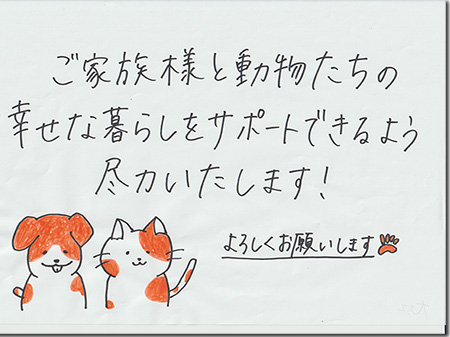 ご家族様と動物たちの
幸せな暮らしをサポートできるよう
尽力いたします!
よろしくお願いします